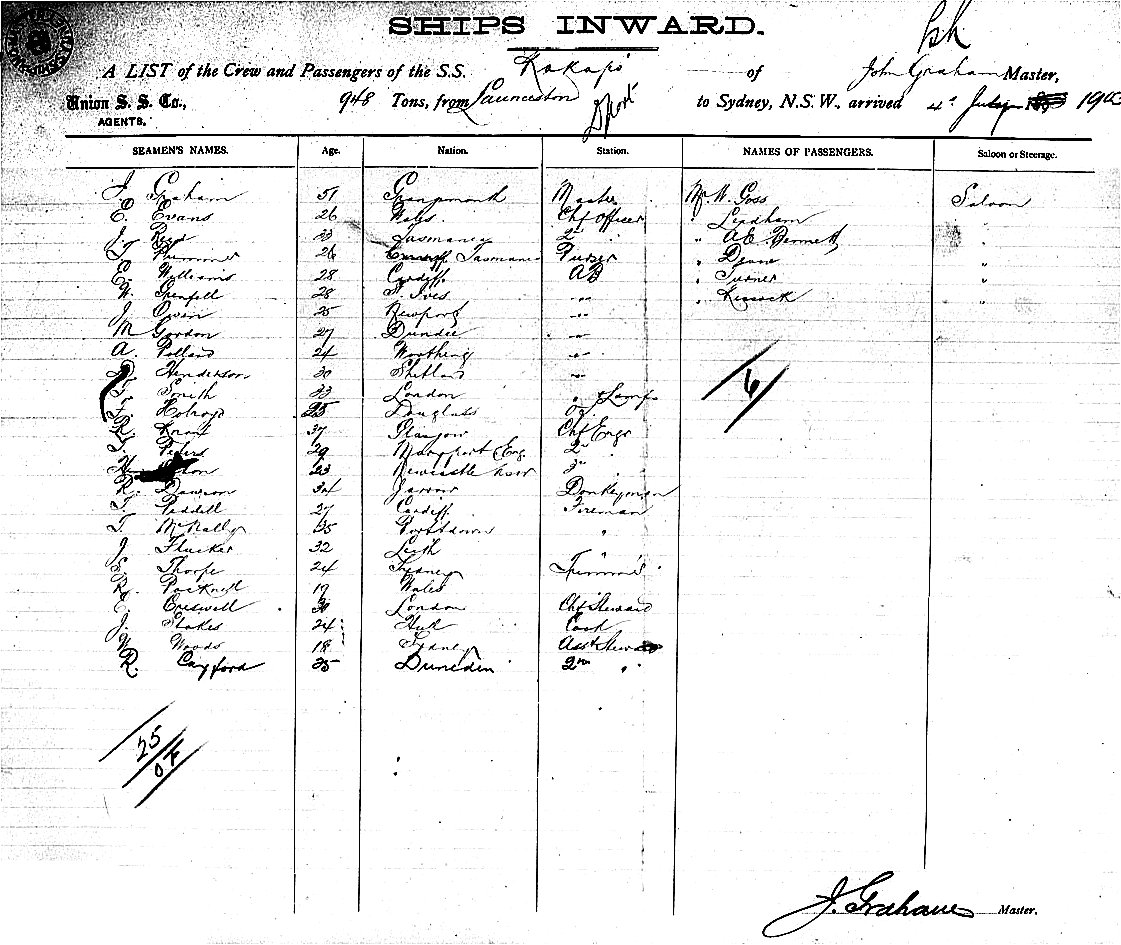 SHIPS INWARD.
A LIST of the Crew and Passengers of the S.S. Kakapo of John Graham Master,
Union S. S. Co., 948 Tons, from Launceston to Sydney, N.S.W. arrived 4th July
AGENTS.
SEAMEN'S NAMES. Age. Nation. Station. NAMES OF PASSENGERS. Saloon or Steerage.
J. Graham 51 Master Mr W. Goss Saloon
E. Evans 26 Wales Chf Officer Leadham "
J. 23 Tasmania 2nd " " A E Bennett "
J. 26 Tasmania Purser " "
E. Williams 28 Cardiff AB " Turner "
W. Grenfell 28 St. Ives " " "
J. Owen 25 Newport "
M Gordon 27 Dundee "
A. Pollard 24 Worthing "
Henderson 30 Shetland "
Smith 33 London " & Lamps
F. Holroyd 25 Douglass
R. Knox 37 Glasgow Chf Engr
Peters 29 Maryport Eng. 2nd "
23 Newcastle 3rd "
R. Dawson 34 Jarrow Donkeyman
T. Paddell 27 Cardiff Fireman
T. McNally 35 Portsdown "
J. Flucker 32 Leith "
E. Thorpe 24 Sydney Trimmer
R. 19 Wales "
Creswell 30 London Chf Steward
J. Stokes 24 Cook
W. Woods 18 Sydney Asst Steward
R. Cayford 25 Dunedin 2nd "
6
25
J. Graham Master.